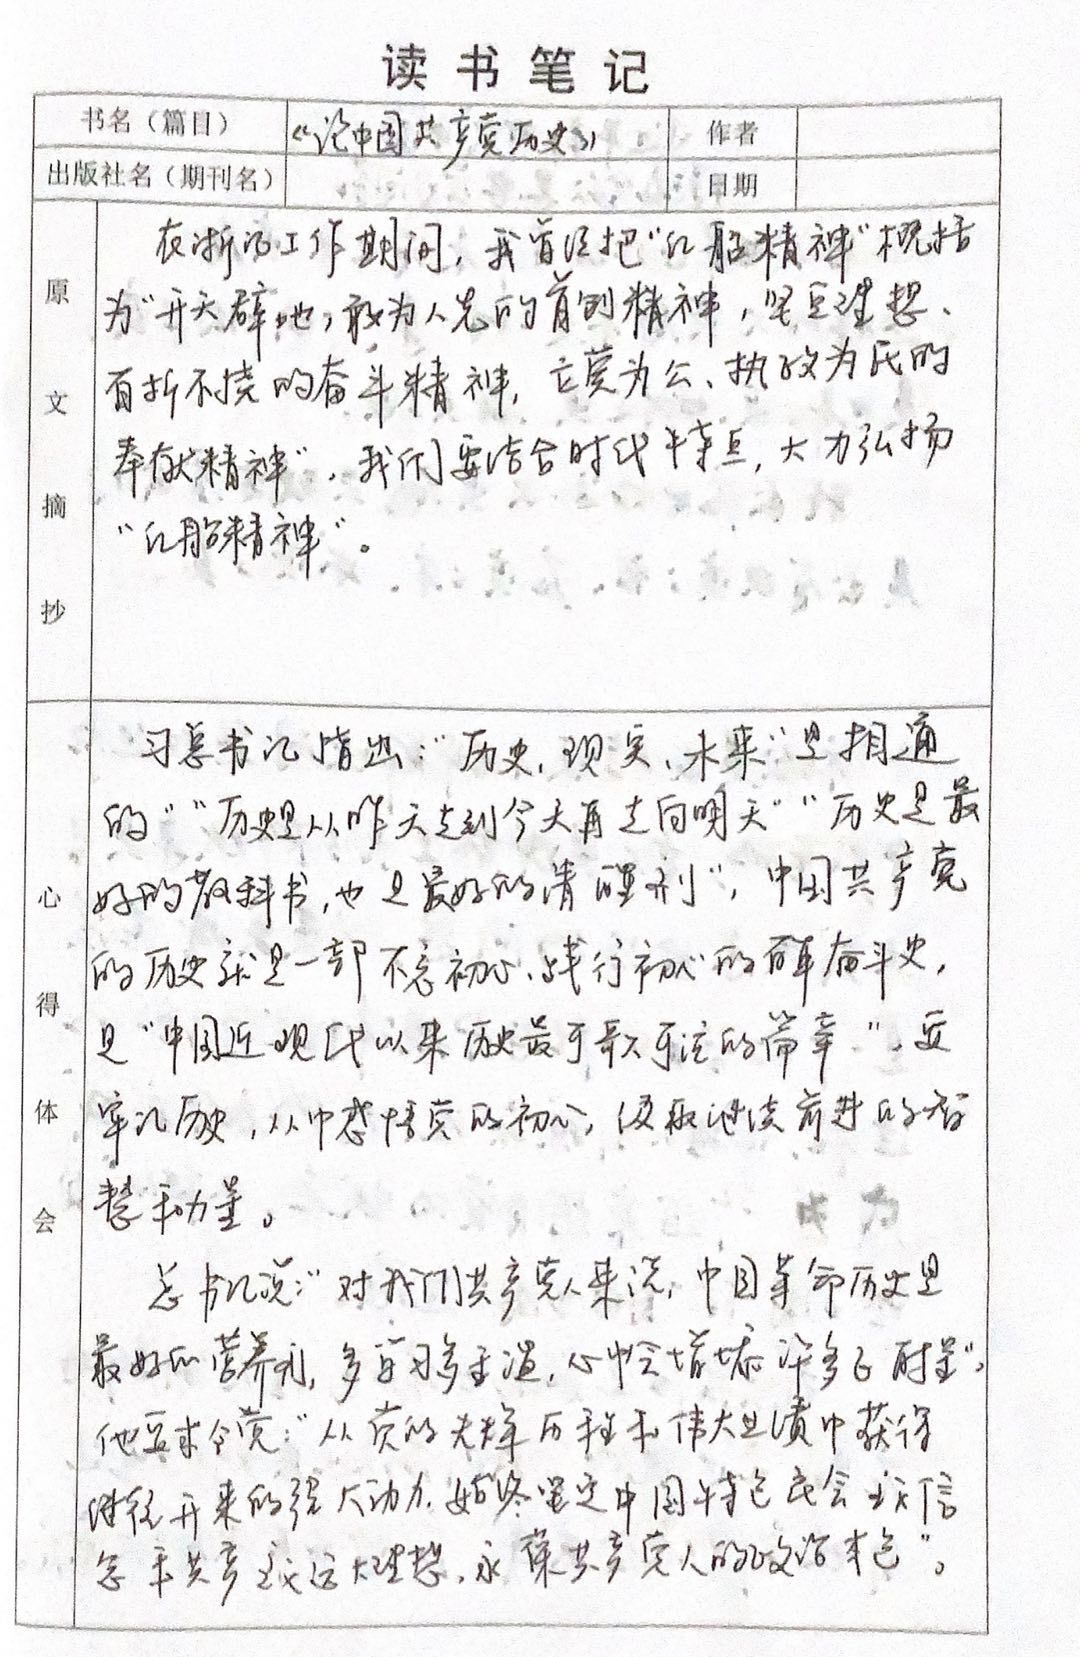 读书笔记
书名（篇目） 《论中国共产党历史》 作者
出版社名（期刊名） 日期
原文摘抄
在浙江工作期间，我曾经把“红船精神”概括
为“开天辟地，敢为人先的首创精神，坚定理想、
百折不挠的奋斗精神，立党为公、执政为民的
奉献精神”，我们要结合时代特点，大力弘扬
“红船精神”。
心得体会
习总书记指出：“历史，现实、未来”是相通
的“”历史是从昨天走到今天再走向明天“”历史是最
好的教科书，也是最好的清醒剂”，中国共产党
的历史就是一部不忘初心、践行初心的百年奋斗史，
是“中国近现代以来历史最可歌可泣的篇章”，要
牢记历史，从中感悟党的初心，汲取继续前进的智
慧和力量。
总书记说：“对我们共产党人来说，中国革命历史是
最好的营养剂，多学习多重温，心中会增添许多正能量”，
他要求全党：“从党的光辉历程和伟大业绩中获得
继往开来的强大动力，始终坚定中国特色社会主义信
念和共产主义远大理想，永葆共产党人的政治本色”。